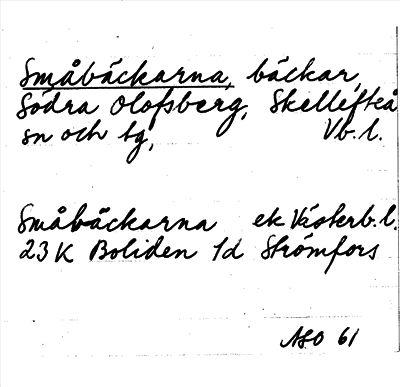 Småbäckarna, bäckar,
Södra Olofsberg, Skellefteå
sn och tg, Vb.l.
Småbäckarna ek Västerb.l.
23 K Boliden 1d Strömfors
ASO 61